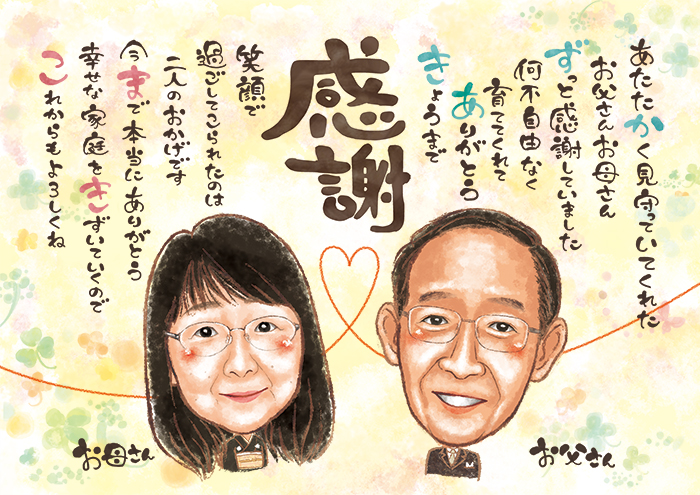 あたたかく見守っていてくれた
お父さんお母さん
ずっと感謝していました
何不自由なく
育ててくれて
ありがとう
きょうまで
感謝
笑顔で
過ごしてこられたのは
二人のおかげです
今まで本当にありがとう
幸せな家庭をきずいていくので
これからもよろしくね
お母さん
お父さん